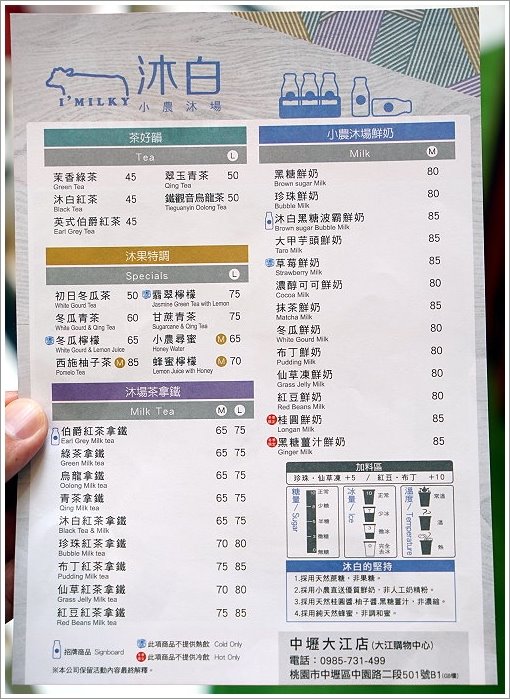 I'MILKY
沐白
小農沐場
茶好韻
Tea
L
茉香綠茶 45
Green Tea
翠玉青茶 50
Qing Tea
沐白紅茶 45
Black Tea
鐵觀音烏龍茶 50
Tieguanyin Oolong Tea
英式伯爵紅茶 45
Earl Grey Tea
沐果特調
Specials
L
初日冬瓜茶 50
White Gourd Tea
翡翠檸檬 75
Jasmine Green Tea with Lemon
冬瓜青茶 60
White Gourd & Qing Tea
甘蔗青茶 75
Sugarcane & Qing Tea
冬瓜檸檬 65
White Gourd & Lemon Juice
小農尋蜜 M 65
Honey Water
西施柚子茶 M 85
Pomelo Tea
蜂蜜檸檬 M 70
Lemon Juice with Honey
沐場茶拿鐵
Milk Tea
M L
伯爵紅茶拿鐵 65 75
Earl Grey Milk tea
綠茶拿鐵 65 75
Green Milk tea
烏龍拿鐵 65 75
Oolong Milk tea
青茶拿鐵 65 75
Qing Milk tea
沐白紅茶拿鐵 65 75
Black Tea & Milk
珍珠紅茶拿鐵 70 80
Bubble Milk tea
布丁紅茶拿鐵 75 85
Pudding Milk tea
仙草紅茶拿鐵 70 80
Grass Jelly Milk tea
紅豆紅茶拿鐵 75 85
Red Beans Milk tea
招牌商品 Signboard
此項商品不提供熱飲 Cold Only
此項商品不提供冷飲 Hot Only
※本公司保留活動內容最終解釋。
小農沐場鮮奶
Milk
M
黑糖鮮奶 80
Brown sugar Milk
珍珠鮮奶 80
Bubble Milk
沐白黑糖波霸鮮奶 85
Brown sugar Bubble Milk
大甲芋頭鮮奶 85
Taro Milk
草莓鮮奶 85
Strawberry Milk
濃醇可可鮮奶 80
Cocoa Milk
抹茶鮮奶 85
Matcha Milk
冬瓜鮮奶 80
White Gourd Milk
布丁鮮奶 80
Pudding Milk
仙草凍鮮奶 80
Grass Jelly Milk
紅豆鮮奶 80
Red Beans Milk
桂圓鮮奶 85
Longan Milk
黑糖薑汁鮮奶 85
Ginger Milk
加料區
珍珠・仙草凍 +5 / 紅豆・布丁 +10
糖量/Sugar
正常
少糖
半糖
微糖
無糖
冰量/Ice
正常
少冰
微冰
完全去冰
溫度/Temperature
常溫
溫
熱
沐白的堅持
1.採用天然蔗糖，非果糖。
2.採用小農直送優質鮮奶，非人工奶精粉。
3.採用天然桂圓醬.柚子醬.黑糖薑汁，非濃縮。
4.採用純天然蜂蜜，非調和蜜。
中壢大江店(大江購物中心)
電話：0985-731-499
桃園市中壢區中園路二段501號B1(GB櫃)